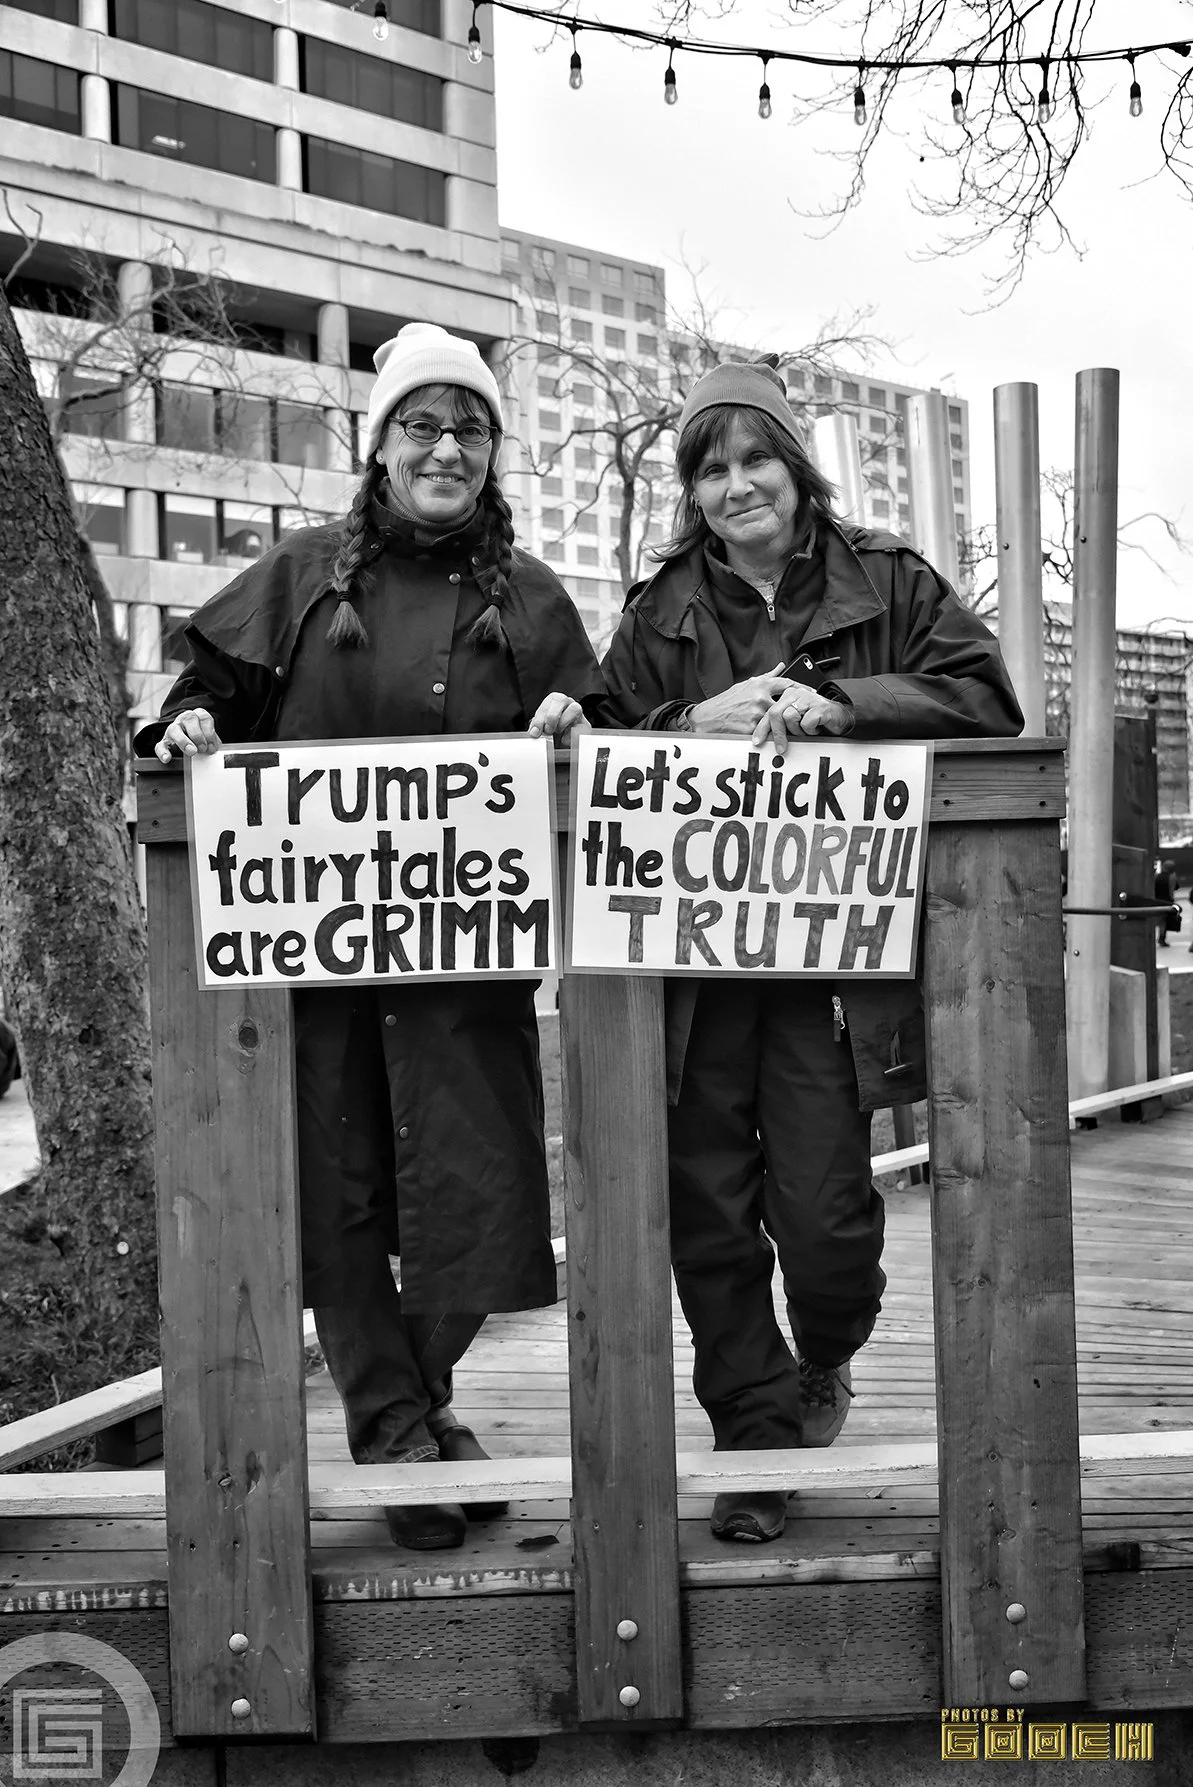 Trump's
fairytales
are GRIMM
Let's stick to
the COLORFUL
TRUTH
PHOTOS BY
GOOCH